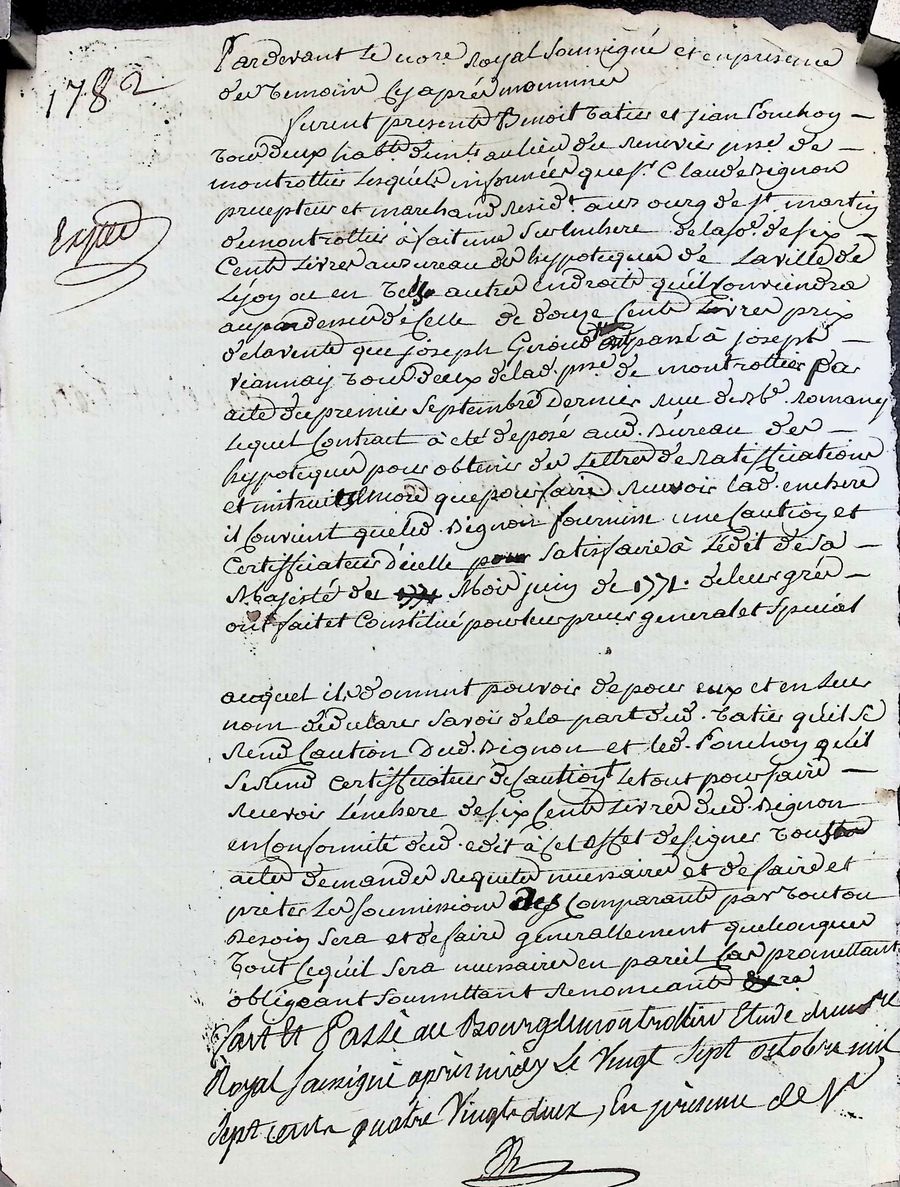 1782
Pardevant Le nore Royal Soussigné et en presence
des temoins Cy après nommés
furent presents Benoit Tatier et jean Ponchon
tous deux habts. du lieu du prse de
montrottier Lesquels informées que sr. Claude Bignon
precepteur et marchand Residt. au Bourg de st martin
de montrottier à fait une Surenchere de la so. de six
Cents Livres au Bureau des hypoteques de La ville de
Lyon ou en tells autres endroits qu'il Conviendra
au par dessus de Celle de douze Cents Livres prix
de la vente que joseph Giroud à passé à joseph
Viannay tous deux de lad. prse de montrottier par
acte du premier Septembre Dernier Reçu Romany
Lequel Contract à eté deposé aud. Bureau des
hypoteques pour obtenir des Lettres de Ratiffications
et instruits que pour faire Recevoir lad. enchere
il Convient que led. Bignon fournisse une Caution et
Certifficateur d'icelle satisfaire à L'edit de Sa
Majesté du Mois juin de 1771. de leurs grés
ont fait et Constitué pour leur preur general et Special
auquel ils donnent pouvoir de pour eux et en Leur
nom declarer Savoir de la part dud. Tatier qu'il se
Rend Caution Dud. Bignon et led. Ponchon qu'il
se Rend Certifficateur de Caution Le tout pour faire
Recevoir L'enchere de six Cents Livres dud. Bignon
en Conformité dud. edit à Cet effet de signer tous
actes demandes Requetes necessaires et de faire et
preter Les soumissions des Comparants partout ou
Besoin Sera et de faire generallement quelconques
tout Ce qu'il Sera necessaire en pareil Cas promettant
obligeant Soumettant Renonceants
Expted
fait Et Passé au Bourg de montrottier Etude du nore
Royal Soussigné après midy Le Vingt Sept octobre mil
sept cents quatre Vingts deux, En presence de Sr